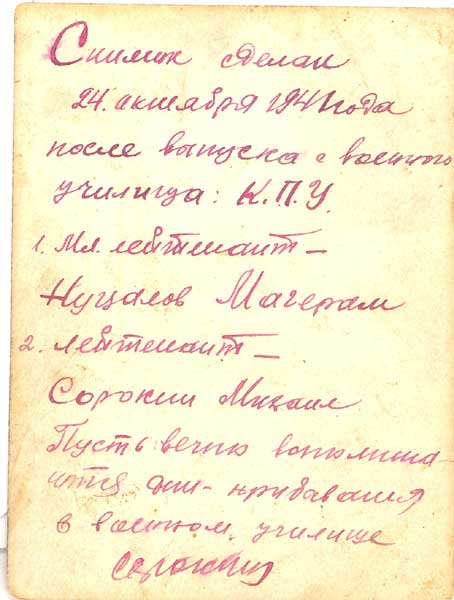 Снимок сделан
24. октября 1941 года
после выпуска с военного
училища: К.П.У.
1. Мл. лейтенант –
Нуцалов Магерам
2. лейтенант –
Сорокин Михаил
Пусть вечно вспомина-
ются дни – прибавания
в военном училище
Сорокин